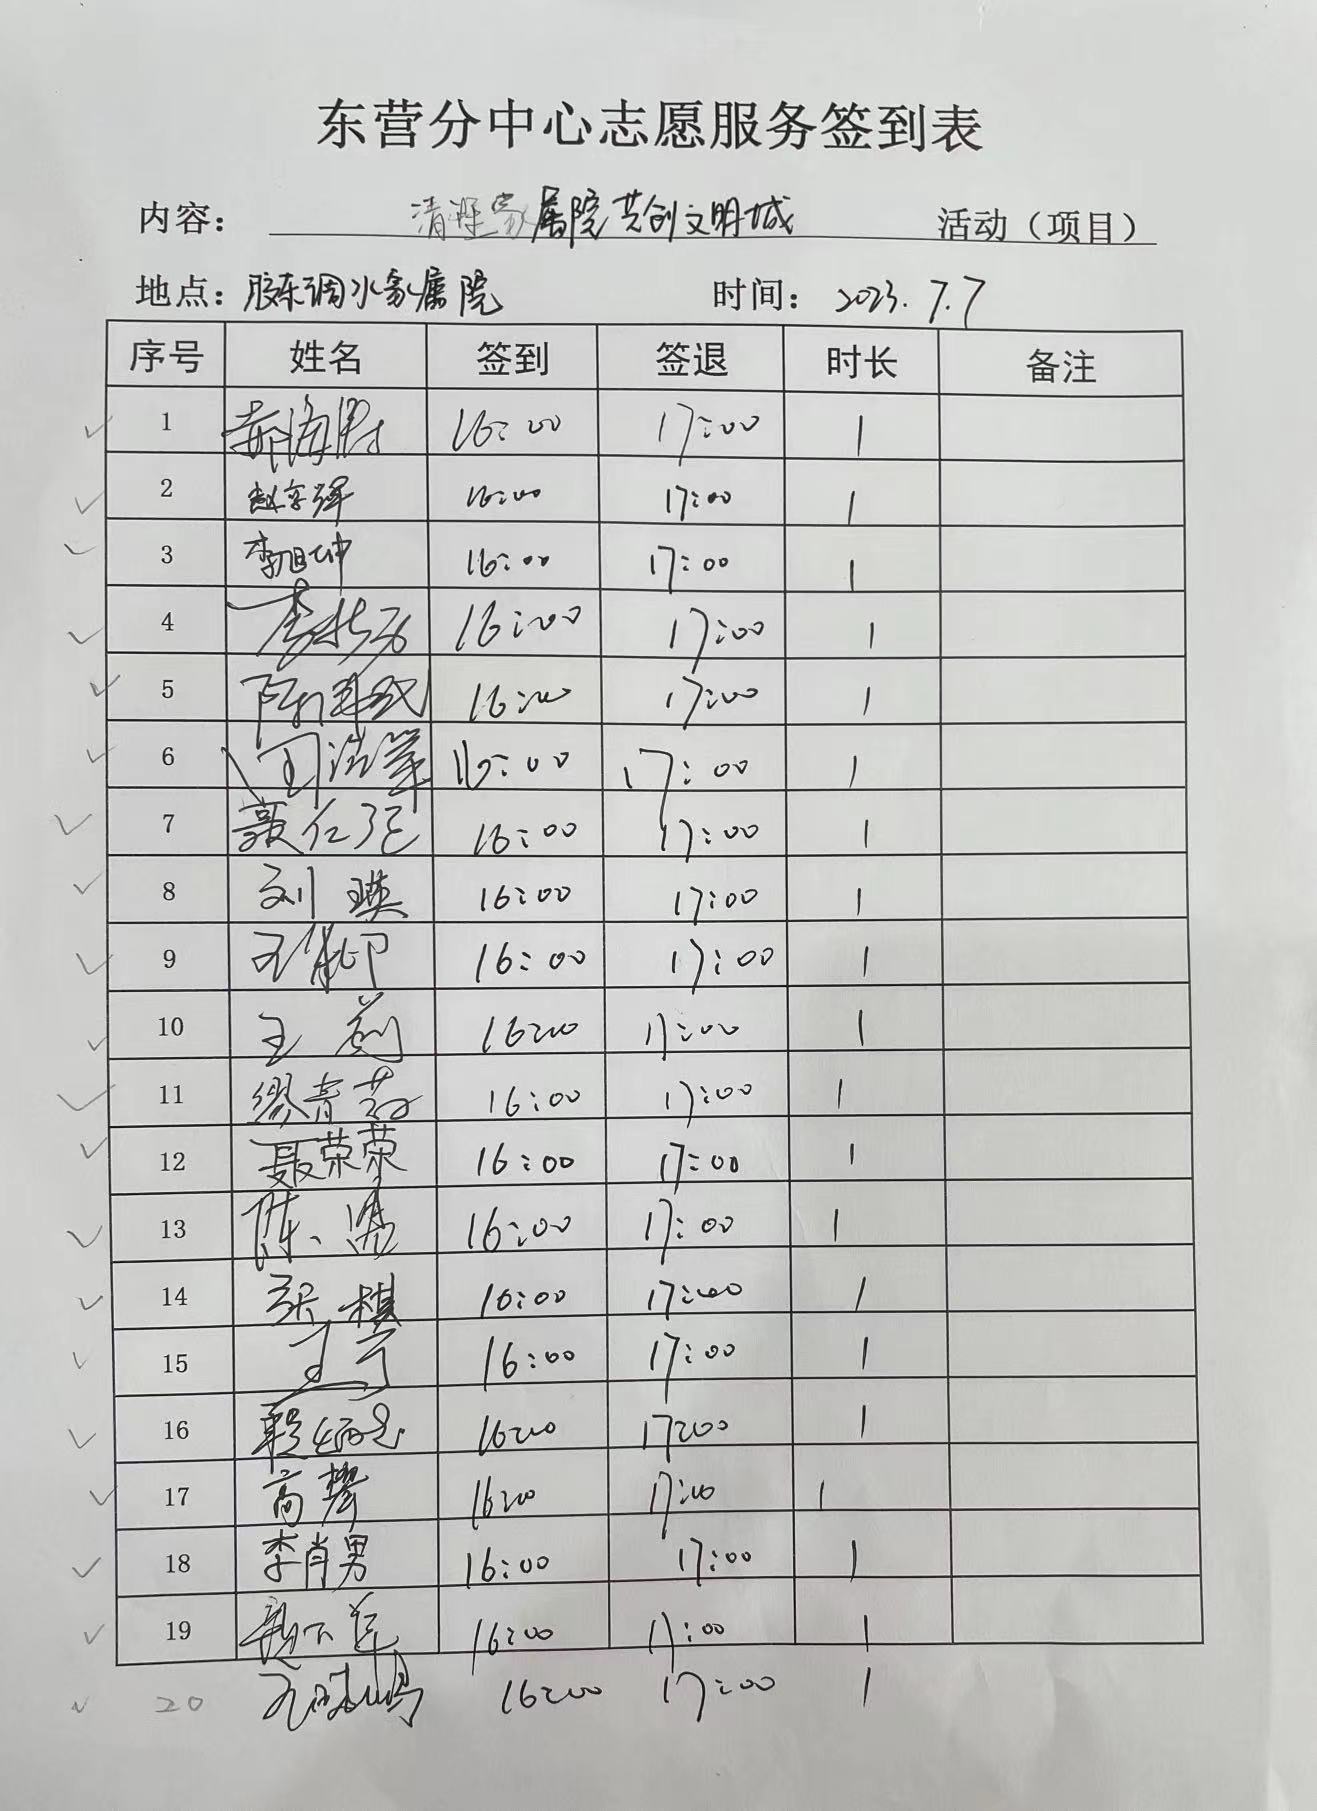 东营分中心志愿服务签到表
内容：清理家属院共创文明城 活动（项目）
地点：胶东调水家属院 时间：2023.7.7
序号 姓名 签到 签退 时长 备注
1 16:00 17:00 1
2 16:00 17:00 1
3 李旭坤 16:00 17:00 1
4 16:00 17:00 1
5 16:00 17:00 1
6 16:00 17:00 1
7 16:00 17:00 1
8 刘瑛 16:00 17:00 1
9 16:00 17:00 1
10 王莉 16:00 17:00 1
11 16:00 17:00 1
12 聂荣荣 16:00 17:00 1
13 16:00 17:00 1
14 张棋 16:00 17:00 1
15 16:00 17:00 1
16 16:00 17:00 1
17 16:00 17:00 1
18 李肖男 16:00 17:00 1
19 16:00 17:00 1
20 16:00 17:00 1